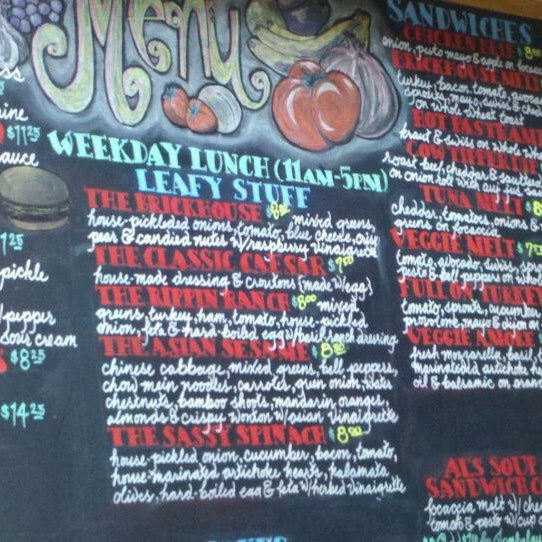 Menu
WEEKDAY LUNCH (11AM-5PM)
LEAFY STUFF
THE BRICKHOUSE $8.00 mixed greens,
house-pickled onions, tomato, blue cheese, crisp
pears & candied nutes w/raspberry vinaigrette
THE CLASSIC CAESAR $7.50
house-made dressing & croutons (made w/egg)
THE RIPPIN RANCH $8.00 mixed
greens, turkey, ham, tomato, house-pickled
onion, feta & hard-boiled egg w/basil ranch dressing
THE ASIAN SESAME $8.50
chinese cabbage, mixed greens, bell peppers,
chow mein noodles, carrots, green onion, water
chestnuts, bamboo shoots, mandarin oranges,
almonds & crispy wonton w/asian vinaigrette
THE SASSY SPINACH $8.50
house-pickled onion, cucumber, bacon, tomato,
house-marinated artichoke hearts, kalamata
olives, hard-boiled egg & feta w/herbed vinaigrette
$11.25
sauce
pickle
/pepper
sour cream
$8.25
$14.25
SANDWICHES
CHICKEN
onion, pesto mayo & apple on focaccia
BRICKHOUSE MELT
turkey, bacon, tomato,
sprouts, mayo, swiss &
on whole wheat toast
HOT PASTRAMI
kraut & swiss on whole
COW TIPPER DIP
roast beef, cheddar &
on onion roll with au jus
TUNA MELT
cheddar, tomatoes, onions &
greens on focaccia
VEGGIE MELT $7
tomato, avocado, swiss,
pesto & bell peppers on whole
FULL ON TURKEY
tomato, sprouts, cucumber
provolone, mayo & dijon on
VEGGIE
fresh mozzarella, basil,
marinated artichoke
oil & balsamic on
AL'S SOUP
SANDWICH
focaccia melt w/
tomato & pesto w/cup